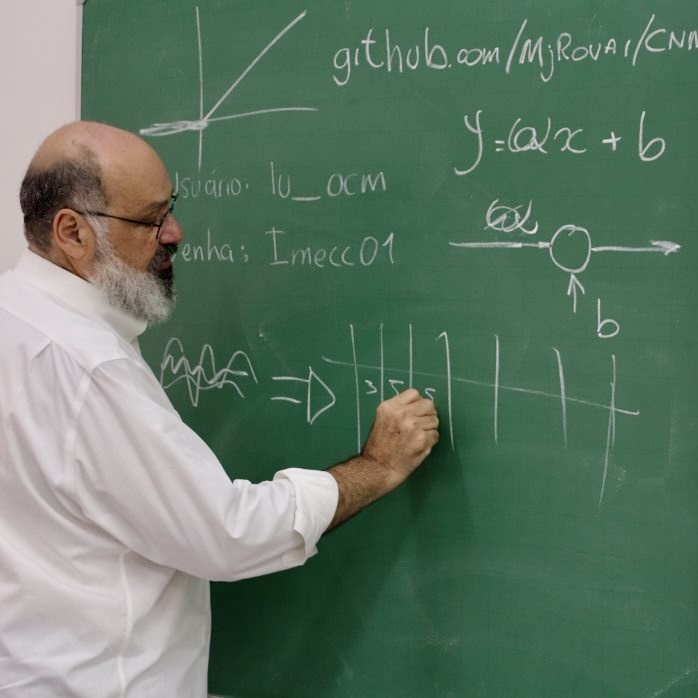 github.com/MjRovai/CNN
y=αx + b
suário: lu_ocm
enha; Imecc01
α
b
3 5 5